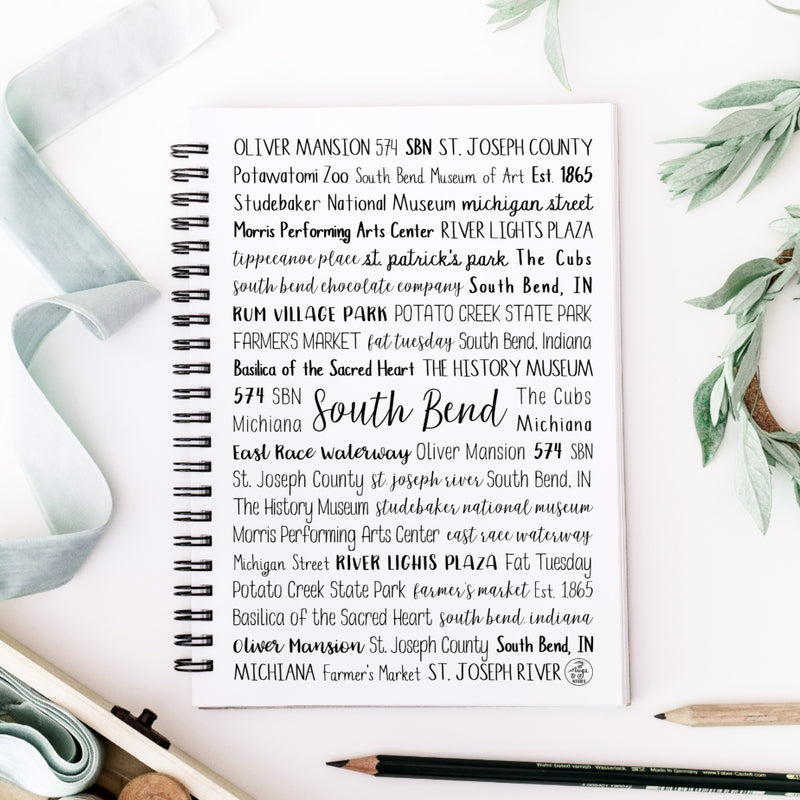 OLIVER MANSION 574 SBN ST. JOSEPH COUNTY
Potawatomi Zoo South Bend Museum of Art Est. 1865
Studebaker National Museum michigan street
Morris Performing Arts Center RIVER LIGHTS PLAZA
tippecanoe place st. patrick's park The Cubs
south bend chocolate company South Bend, IN
RUM VILLAGE PARK POTATO CREEK STATE PARK
FARMER'S MARKET fat tuesday South Bend, Indiana
Basilica of the Sacred Heart THE HISTORY MUSEUM
574 SBN South Bend The Cubs
Michiana Michiana
East Race Waterway Oliver Mansion 574 SBN
St. Joseph County st. joseph river South Bend, IN
The History Museum studebaker national museum
Morris Performing Arts Center east race waterway
Michigan Street RIVER LIGHTS PLAZA Fat Tuesday
Potato Creek State Park farmer's market Est. 1865
Basilica of the Sacred Heart south bend, indiana
Oliver Mansion St. Joseph County South Bend, IN
MICHIANA Farmer's Market ST. JOSEPH RIVER
Water-based varnish Wasserlack Made in Germany www.Faber-Castell.com